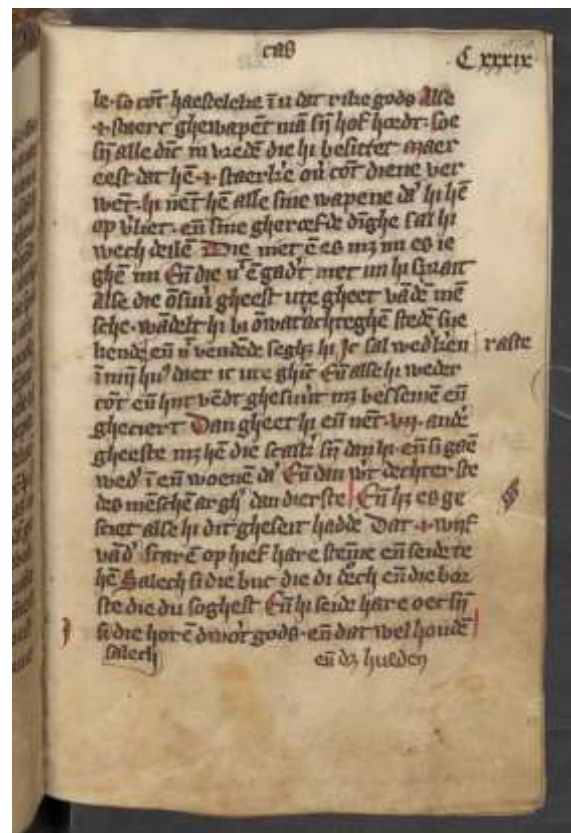 cas
C xxxix
le · so cō̄t haestelehe ī u dat rike gods Alse
·i· staerc ghewapēt mā sijn hof hoedt · soe
sijn alle dinc in vredē die hi besittet Maer
eest dat hē ·i· staerk'e ou' cōt diene ver
wet · hi nēt hē alle sine wapene da' hi hē
op vliet · eñ sine gheroefde dīghe sal hi
wech deilē Die met ē es mz mi es ie
ghē mi Eñ die n' ē gad't met mi hi
Alse die ōsuu' gheest ute gheet vādē mē
sche · wādelt hi bi ōwat'achteghē stedē sue
kende eñ n' vendēde seghz hi Ic sal wedk'en raste
ī mijn hu' daer ic ute ghic Eñ alse hi weder
cōt eñ hyt vēdt ghesuu't mz bessemē eñ
gheciert Dan gheet hi eñ nēt ·vij· and'e
gheeste mz hē die sijn dan hi · eñ si gaē
wed' ī eñ woenē da' Eñ dan wt dechterste
des mēschē argh' dan dierste Eñ hz es ge
sciet alse hi dit gheseit hadde Dat ·i· wijf
vād' scarē op hief hare stēme eñ seide te
hē Salech si die buc die di droech eñ die bor
ste die du soghest Eñ hi seide hare oec sijn
si die horē dwoert gods · eñ dat wel houdē
salech eñ dz hueden